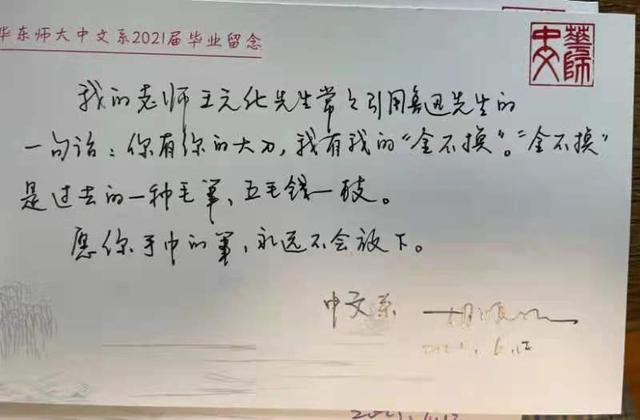 华东师大中文系2021届毕业留念
華師
中文
我的老师王元化先生常々引用鲁迅先生的
一句话：你有你的大刀，我有我的“金不换”。“金不换”
是过去的一种毛笔，五毛钱一枝。
愿你手中的笔，永远不会放下。
中文系
6.12